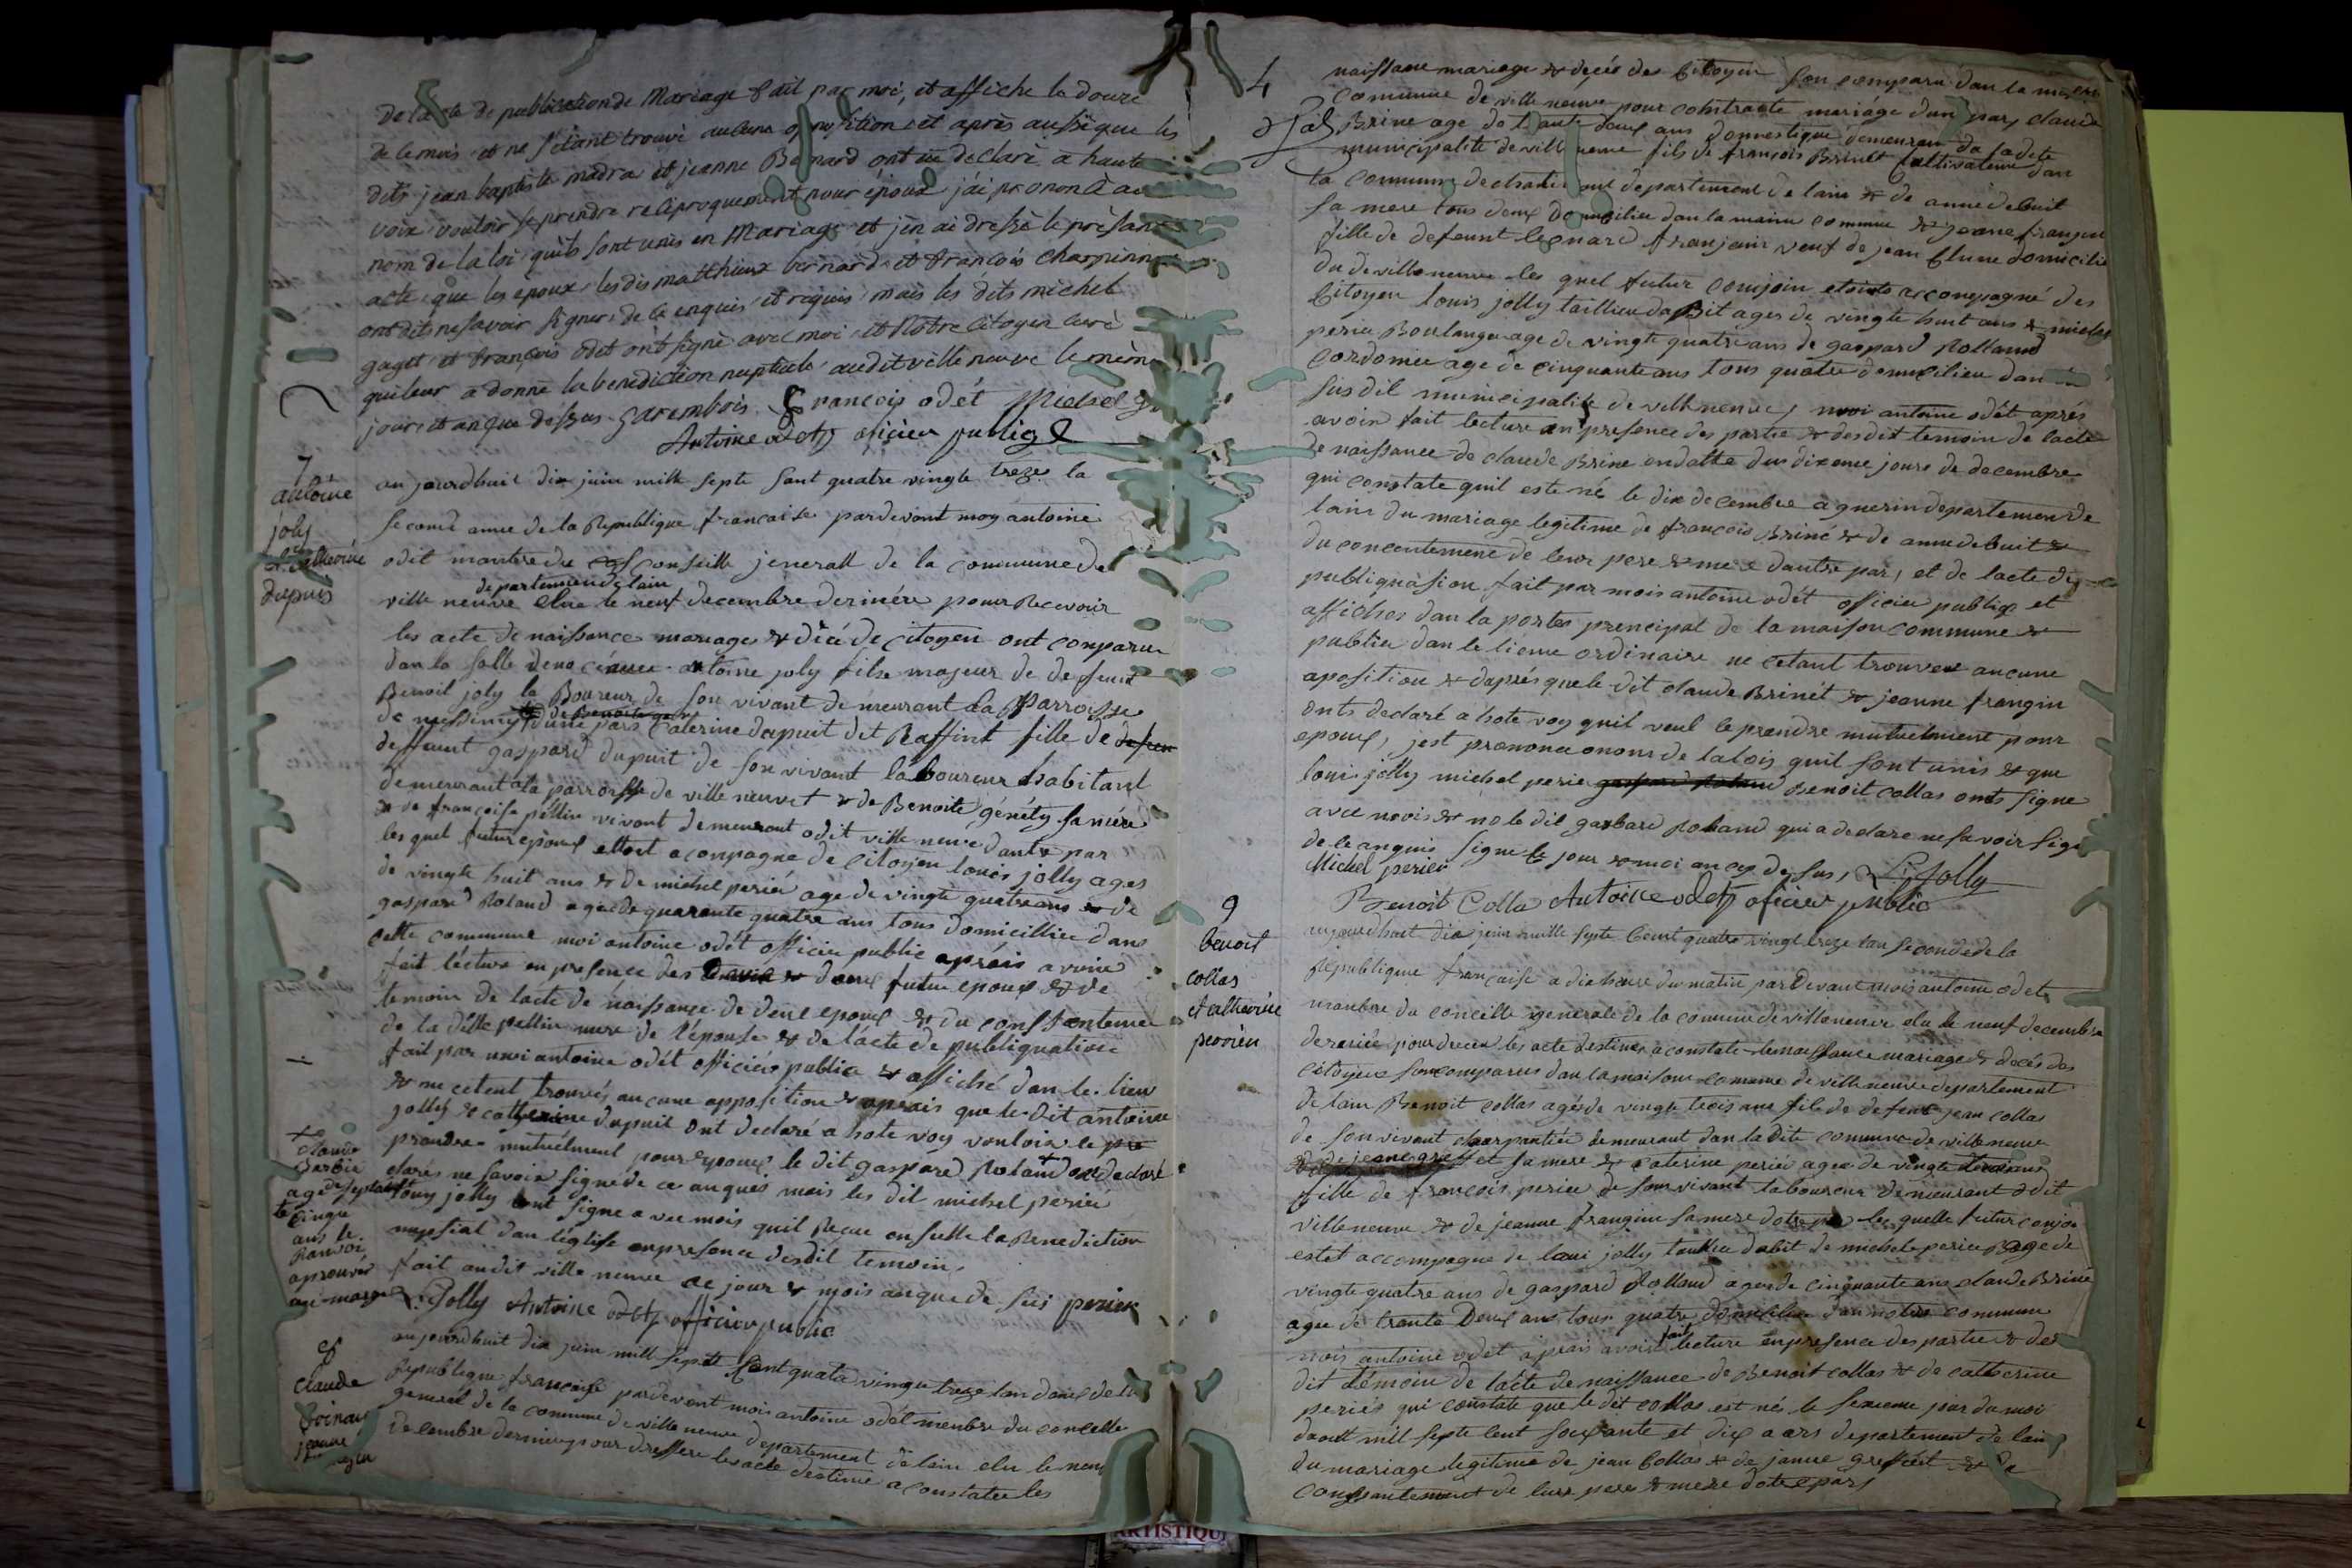 de la de publication de Mariage fait par moi, et affiche le douze
de le mois et ne s'etant trouvé aucune oposition et aprés aussi que les
dits jean baptiste madra et jeanne Bernard ont declaré a haute
voix vouloir se prendre reciproquement pour époux j'ai prononcé au
nom de la loi qu'ils sont unis en Mariage et j'en ai dressé le présant
acte que les epoux les dis matthieux bernard et francois charpinn
ont dits ne savoir signer de ce enquis et requis mais les dits michel
gaget et françois odet ont signé avec moi et Notre Citoyen curé
qui leur a donné la benediction nuptiale audit ville neuve le même
jour et an que dessus garembois françois odét Michel
Antoine odet oficier publiqe
7
antoine
joly
et Catherine
dupuis
au jourdhuit dix juin mille septe sant quatre vingte treze la
second anné de la Republique francaise pardevant moy antoine
odit manbre du conseille jenerall de la commune de
departement de lain
ville neuve elue le neuf decembre derniére pour Recevoir
les acte de naissance mariages & décé de citoyen ont conparu
dan la salle antoine joly fils majeur de deffunt
Benoit joly la Boureur de son vivant demeurant la Parroisse
de messimy d'une pars Caterine dupuit dit Raffint fille de
deffunt gaspard dupuit de son vivant laboureur habitant
demeurant a la parroisse de ville neuve & de Benoite généty sa mére
& de françoise péllin vivant demeurant odit ville neuve dautr par
les quel futur epoux ettoit aconpagné de citoyen louis jolly ages
de vingte huit ans & de michel periér age de vingte quatre ans & de
gaspard Roland age de quarante quatre ans tous domicillier dans
cette commune moi antoine odét officier public aprais avoire
fait lécture en presence des deux futur epoux & de
temoin de lacte de naissance de deux epoux & du conssentemen
de la ditte pellin mere de l'épouse & de lácte de publiquation
fait par moi antoine odét officiér public & affiché dan le lieu
& ne cetent trouvés aucune opposition & aprais que le dit antoine
jolly & catherine dupuit ont declaré a hote voy vouloir ce
prandre mutuélment pour epoux le dit gaspard Roland a declaré
ne savoir signé de ce anques mais les dit michel periér
louy jolly ont signe avec mois quil Reçue ensuitte la Benediction
nupsial dan l'église en presence desdit temoin,
fait audit ville neuve ce jour & mois anque de sus perier
L. Jolly Antoine odet officier public
+ claude
Barbier
age de septante
cinque
ans le
Ranvoi
aprouvé
an marge
8
claude
Brinay
jeanne
aujourdhuit dix juin mill septe sent quatre vingte treze lan deux de la
Republique française pardevant mois antoine odét menbre du conceille
general de la commune de ville neuve departement de lain elu le neuf
decembre dernier pour dressere les acte destiné a constater les
4
naissance mariage & décés des Citoyen son comparu dan la maison
comunne de ville neuve pour contracte mariáge dun par claude
Brine age de trante deux ans domestique demeuran da la dite
municipalite de villeneuve fils de françois Brinet Cultivateur dan
la commune de chatill ont departement de lain & de anne debuit
sa mere tous deux domicilier dan la maime commune & jeanne franjin
fille de defeunt leonard franjoin veuf de jean Clune domicilie
du de villeneuve les quel futur conjoin etoint accompagné des
Citoyen louis jolly taillieur dabit ages de vingte huit ans & michel
perier Boulangé age de vingte quatre ans de gaspard Rolland
Cordonier age de cinquante ans tous quatre domicilier dan
susdit municipalité de villeneuve, moi antoine odét aprés
avoir fait lecture an presence des partie & desdit temoin de lacte
de naissance de claude Brine endatte du dixeme jours de decembre
qui constate quil este né le dix decembre a guerin departemen de
lain du mariage legitime de françois Briné & de anne debuit &
du concentement de leur pere & mere dautre par, et de lacte de
publiquasion fait par mois antoine odét officier publiqe et
affiches dan la portes principal de la maison commune &
publier dan le lieme ordinaire ne cetant trouver aucune
aposition & daprés que le dit claude Brinét & jeanne frangin
onts declaré a hote voy quil veul le prendre mutuelment pour
epoux, jest prononce onom de la lois quil sont unis & que
loui jolly michel perier Benoit collas onts signe
avec mois & no le dit gasbard Roland qui a declare ne savoir signe
de ce anquis signe le jour & moi an ceq desus, L. Jolly
Michel perier
Benoit Colla Antoine odet oficier public
9
benoit
collas
et catherine
perrier
aujourdhuit dix juin mille septe Cent quatre vingt treze lan seconde de la
Republique française a dix heure du matin par Devant mois antoine odet
manbre du conceille generale de la commune de villeneuve elu le neuf decembre
dernié pour les acte destines a constate le naissance mariage & decés des
citoyen son comparus dan la maison comune de villeneuve departement
de lain Benoit collas agés de vingte trois ans fils de defent jean collas
de son vivant charpantiér demeurant dan la dite commune de villeneuve
& de jeane greff et sa mere & caterine periér agee de vingte
fille de françois perier de son vivant laboureur demeurant odit
villeneuve & de jeanne frangin sa mere dotre par les quelle futur conjoi
estét accompagné de loui jolly taillier dabit de michel perier age de
vingte quatre ans de gaspard Rolland age de cinquante ans claude Briné
age de trante Deux ans tous quatre domicilier dan notre commune
mois antoine odét aprais avoir fait lecture enpresence des partie & des
dit témoin de lacte de naissance de Benoit collas & de catherine
periér qui constate que le dit collas est nés le sexieme jour du moi
daoutt mill septe cent soixante et dix a ars departement de lain
du mariage legitime de jean Collas & de janne greffét & du
conssantement de leur pere & mere dotre par
ARTISTIQU